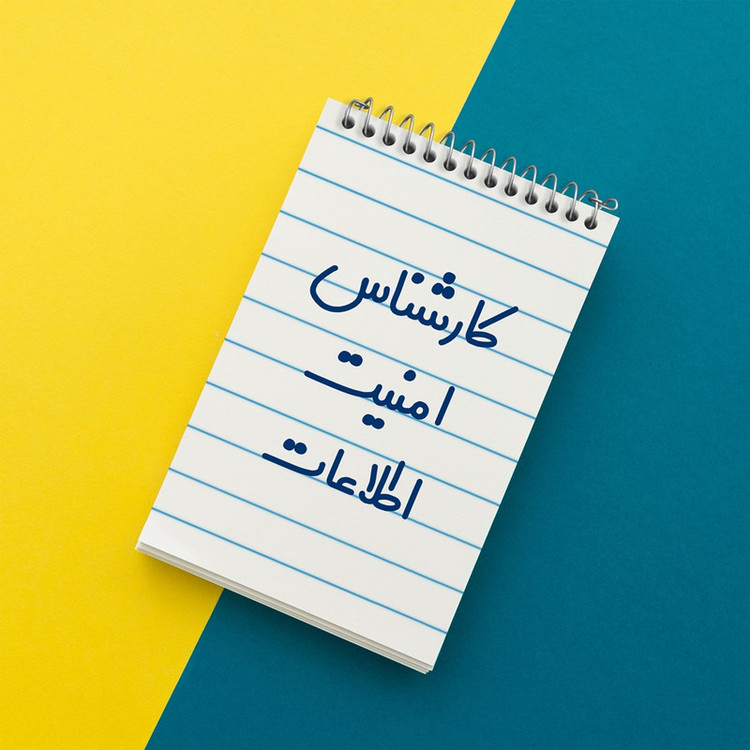 کارشناس
امنیت
اطلاعات